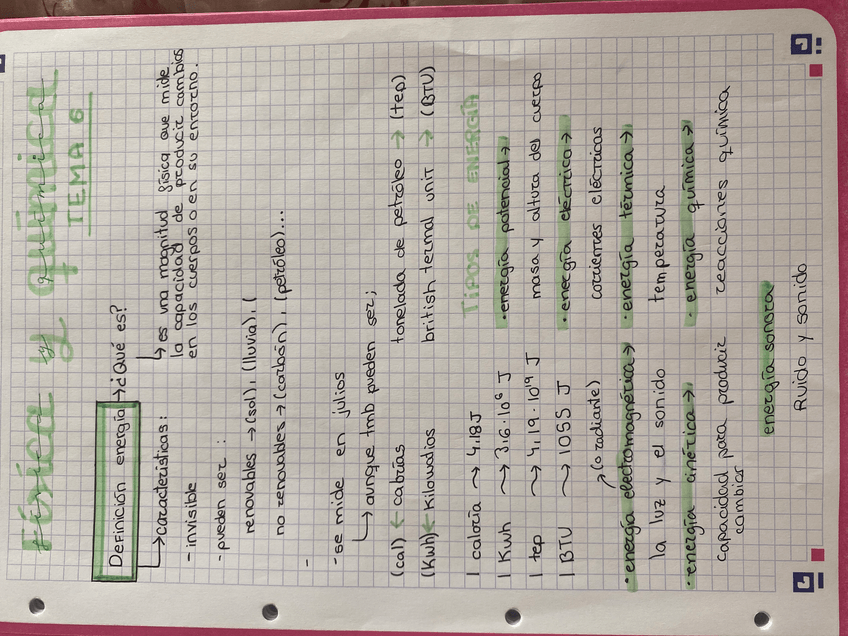 Física y química
TEMA 6
Definición energía → ¿Qué es?
↳ es una magnitud física que mide
la capacidad de producir cambios
en los cuerpos o en su entorno.
↳ características:
- invisible
- pueden ser :
renovables → (sol), (lluvia), (
no renovables → (carbón), (petróleo)...
-
- se mide en julios
↳ aunque tmb pueden ser;
(cal) ← calorías
tonelada de petróleo → (tep)
(Kwh) ← Kilowadios
british termal unit → (BTU)
1 caloría → 4,18J
1 Kwh → 3'6·10⁶ J
1 tep → 4,19·10¹⁹ J
1 BTU → 1055 J
TIPOS DE ENERGÍA
· energía potencial →
masa y altura del cuerpo
· energía eléctrica →
corrientes eléctricas
(o radiante)
· energía electromagnética →
la luz y el sonido
· energía térmica →
temperatura
· energía cinética →
capacidad para producir
cambios
· energía química →
reacciones química
energía sonora
Ruido y sonido